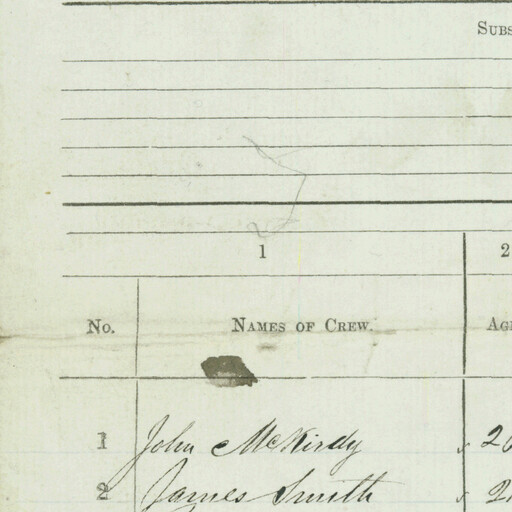 1 2
No. Names of Crew.
1 John McKirdy
2 James Smith